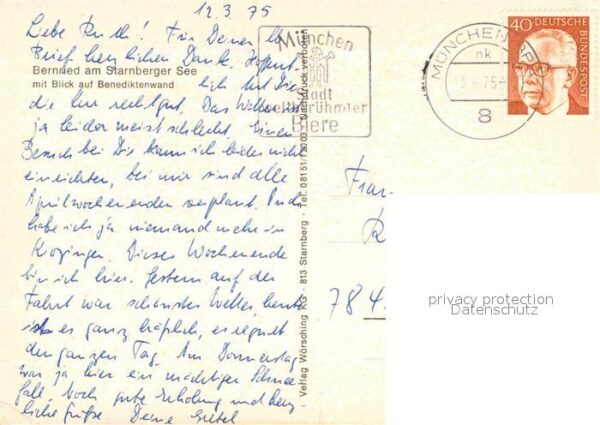 12.3.75
Liebe Ruth! Für Deinen lb
Brief herzlichen Dank. Hoffent
Bernried am Starnberger See
lich tut Dir
mit Blick auf Benediktenwand
die Kur recht gut. Das Wetter
ja leider meist schlecht. Einen
Besuch bei Dir kann ich leider nicht
einrichten, bei mir sind alle
Aprilwochenenden verplant. Auch
habe ich ja niemand mehr in
Krozingen. Dieses Wochenende
bin ich hier. Gestern auf der
Fahrt war schönstes Wetter, heute
ist es ganz häßlich, es regnet
den ganzen Tag. Am Donnerstag
war ja hier ein mächtiger Schnee
fall. Noch gute Erholung und herz
liche Grüße Deine Gretel
Verlag Wörsching KG · 813 Starnberg · Tel. 08151/12003 Nachdruck verboten
München
Stadt
weltberühmter
Biere
MÜNCHEN
nk
75
8
40 DEUTSCHE
BUNDESPOST
Frau
784
privacy protection
Datenschutz